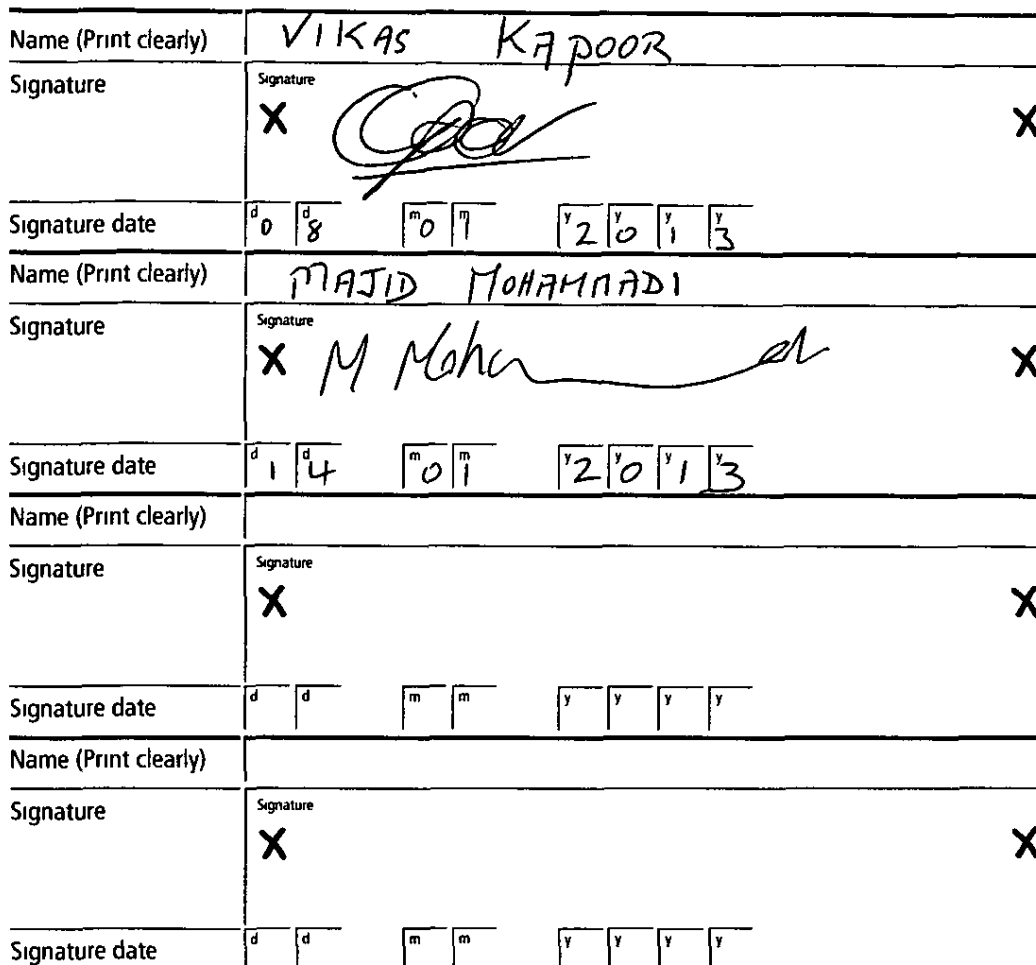 Name (Print clearly) VIKAS KAPOOR
Signature
Signature
X X
Signature date d 0 d 8 m 0 m 1 y 2 y 0 y 1 y 3
Name (Print clearly) MAJID MOHAMMADI
Signature
Signature
X M Moha X
Signature date d 1 d 4 m 0 m 1 y 2 y 0 y 1 y 3
Name (Print clearly)
Signature
Signature
X X
Signature date d d m m y y y y
Name (Print clearly)
Signature
Signature
X X
Signature date d d m m y y y y